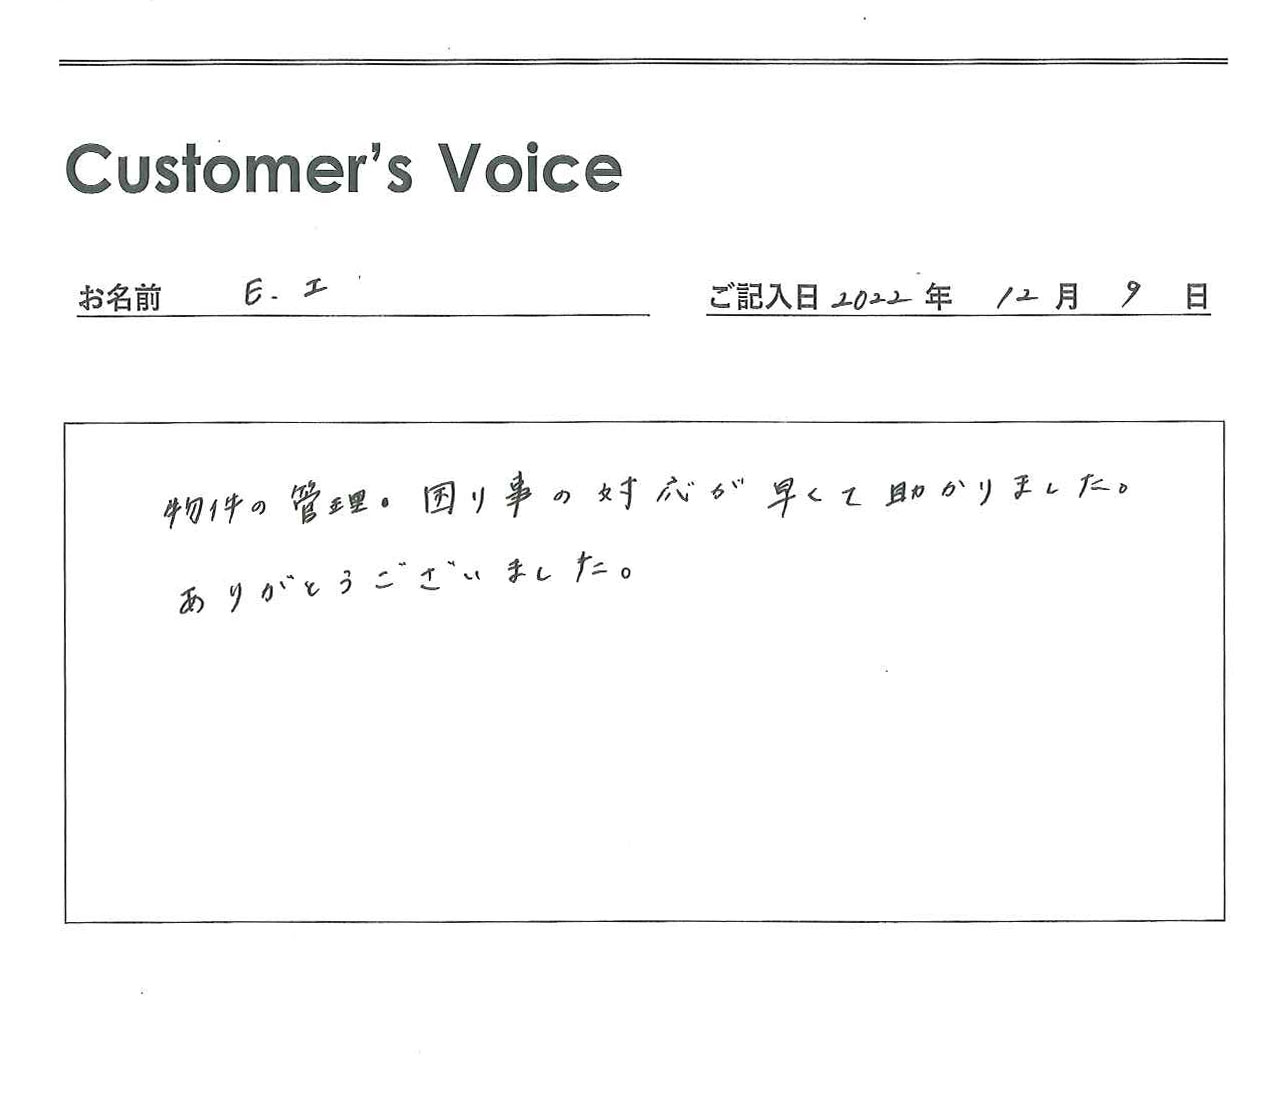 Customer's Voice
お名前 E. I
ご記入日 2022 年 12 月 9 日
物件の管理・困り事の対応が早くて助かりました。
ありがとうございました。